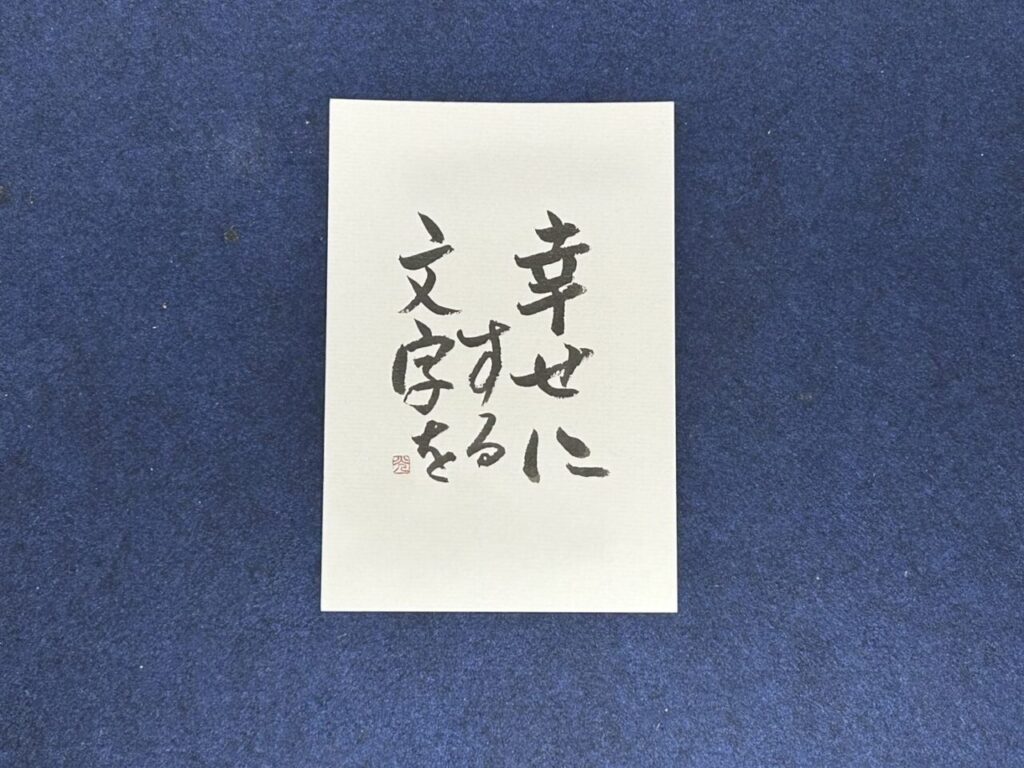 幸せに
する
文字を